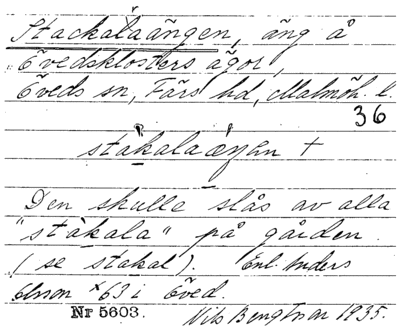 Stackalaängen, äng å
Övedsklosters ägor,
Öveds sn, Färs hd, Malmöh. l.
36
stakalaæŋən +
Den skulle slås av alla
"stakala" på gården
(se stakal). Enl. Anders
Olsson *63 i Öved.
Nr 5603. Nils Bengtsson 1935.